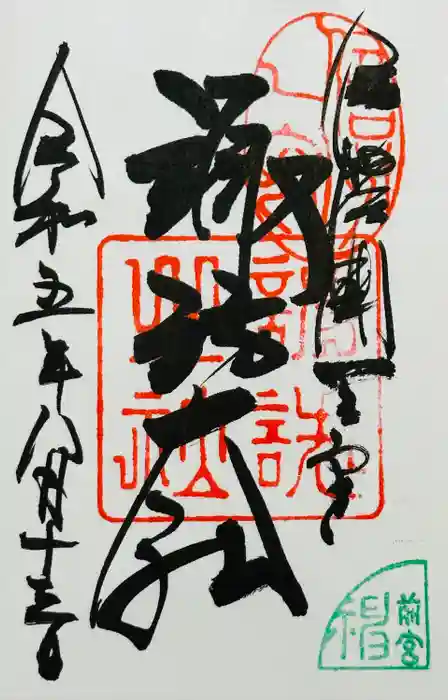 信濃國一之宮
諏訪大社
令和五年八月十三日
前宮